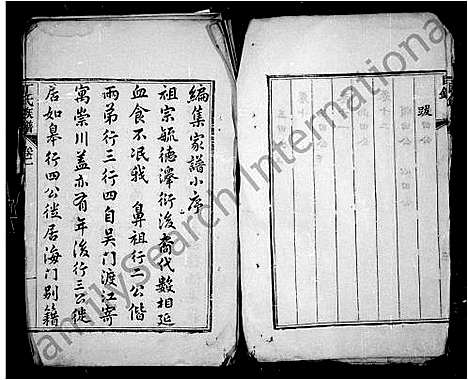 跋
編集家譜小序
祖宗毓德澤衍後裔代數相延
血食不泯我鼻祖行二公偕
兩弟行三行四自吳門渡江寄
寓崇川蓋亦有年後行三公徙
居如皋行四公徙居海門別籍
氏族譜 卷一
FamilySearch International